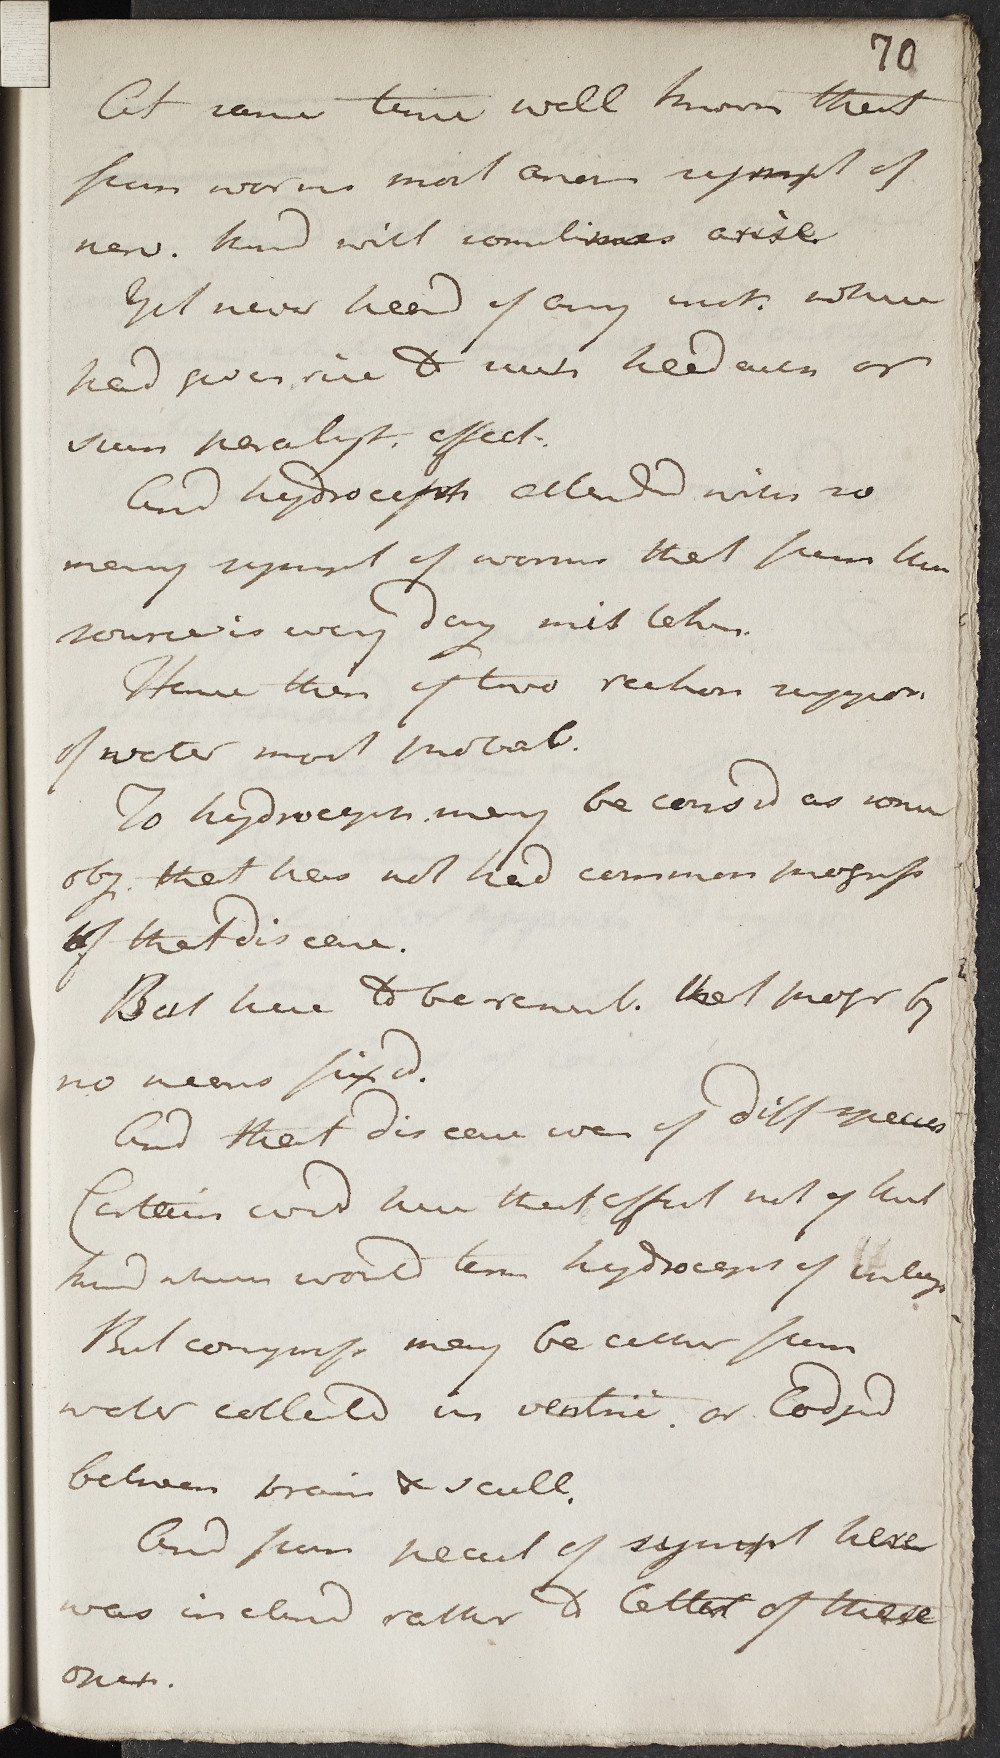 70
At same time well known that
from worms most anom sympt of
nerv. kind will sometimes arise
Yet never heard of any inst. where
had given rise to such headach or
such paralyt. effect.
And hydroceph attended with so
many sympt of worms that from this
source is every day mistaken.
Hence then of two rather suppos
of water most probab.
To hydroceph. may be cons'd as some
obj. that has not had common progress
of that disease.
But here to be rememb. that progr by
no means fix'd.
And that disease was of diff species
Certain cou'd have that effect not of that
kind whun would term hydroceph of
But compress may be either from
water collected in ventric. or Lodg'd
between brain & scull.
And from pecul of sympt here
was inclin'd rather to latter of these
ones.